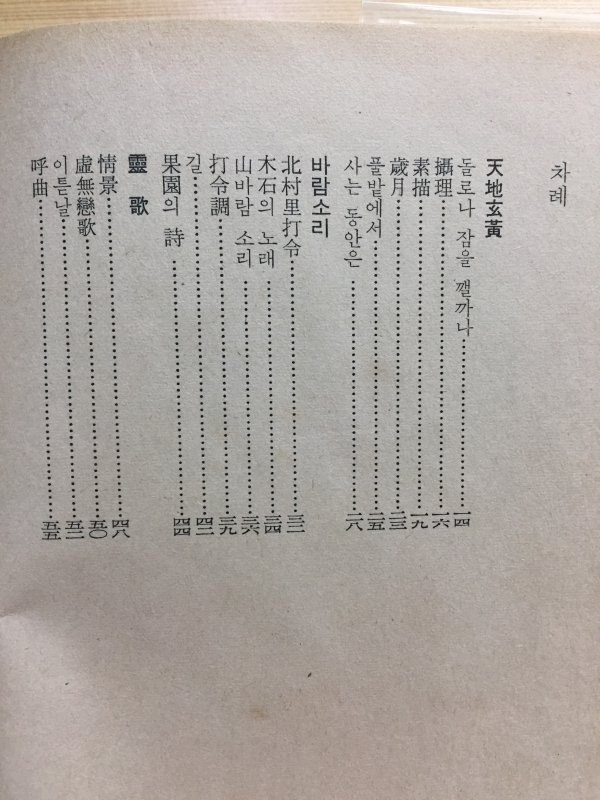 차례
天地玄黃
돌로나 잠을 깰까나 一四
攝理 一六
素描 一九
歲月 二三
풀밭에서 二五
사는 동안은 二八
바람소리
北村里打令 三二
木石의 노래 三四
山바람 소리 三六
打令調 三九
길 四二
果園의 詩 四四
靈歌
情景 四八
虛無戀歌 五〇
이튿날 五三
呼曲 五五